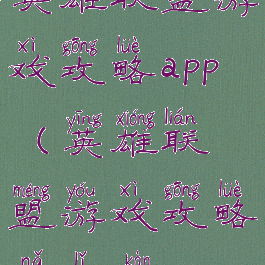 英雄联盟游
xì gōng lüè
戏攻略app
yīng xióng lián
(英雄联
méng yóu xì gōng lüè
盟游戏攻略
nǎ lǐ kàn